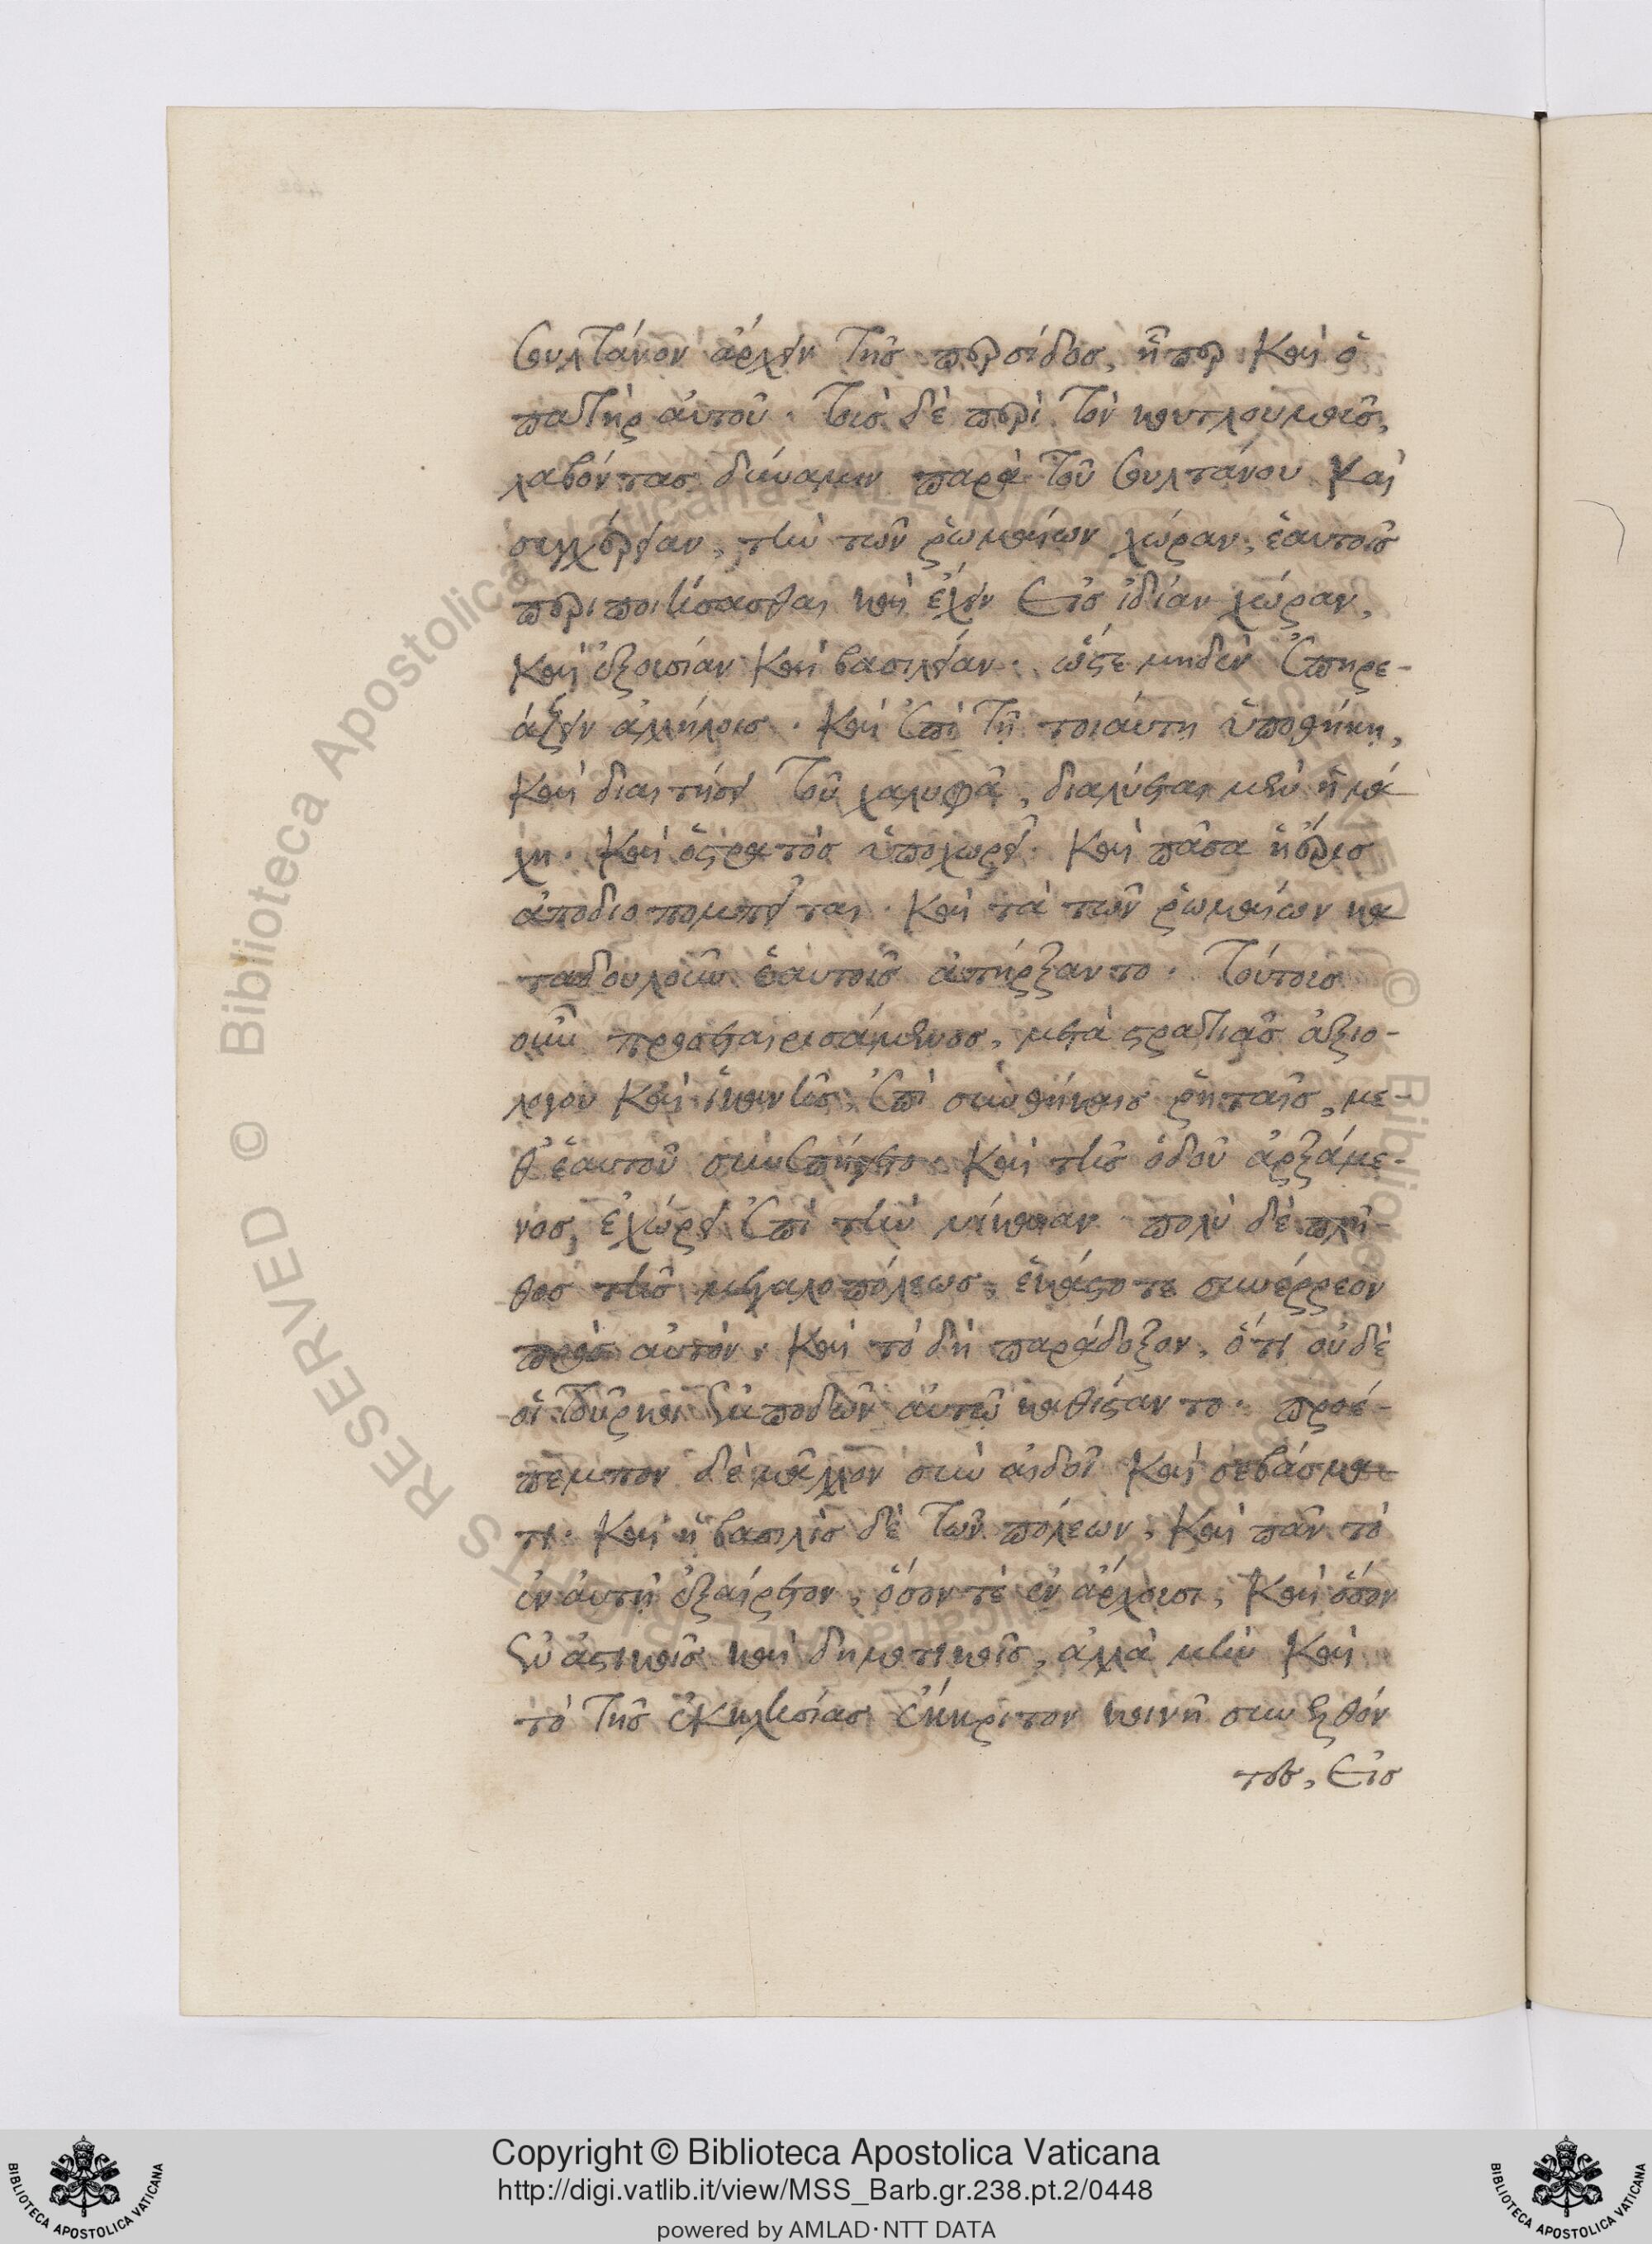 σουλτάνον ἄρχειν τῆς περσίδος, ἧπερ καὶ ὁ
πατὴρ αὐτοῦ. τοὺς δὲ περὶ τὸν κουτλουμοῦς,
λαβόντας δύναμιν παρὰ τοῦ σουλτάνου καὶ
συγχέρειαν, τὴν τῶν ῥωμαίων χώραν, ἑαυτοῖς
περιποιήσασθαι καὶ ἔχειν εἰς ἰδίαν χώραν,
καὶ ἐξουσίαν καὶ βασιλείαν. ὥστε μηδὲν ἐπηρε-
άζειν ἀλλήλοις. καὶ ἐπὶ τῇ τοιαύτη ὑποθήκῃ,
καὶ διαιτήσει τοῦ χαλυφᾶ, διαλύεται μὲν ἡ μά
χη. καὶ ὁ στρατὸς ὑποχωρεῖ. καὶ πᾶσα ἡ ἔρις
ἀποδιοπομπεῖται. καὶ τὰ τῶν ῥωμαίων κα
ταδουλοῦν ἑαυτοῖς ἀπήρξαντο. τούτοις
οὖν προσεταιρισάμενος, μετὰ στρατιᾶς ἀξιο-
λόγου καὶ ἱκανῆς, ἐπὶ συνθήκαις ῥηταῖς, με-
θ ἑαυτοῦ συνεπήγετο. καὶ τῆς ὁδοῦ ἀρξάμε-
νος, ἐχώρει ἐπὶ τὴν νίκαιαν. πολὺ δὲ πλῆ-
θος τῆς μεγαλοπόλεως, ἑκάστοτε συνέρρεον
πρὸς αὐτόν. καὶ τὸ δὴ παράδοξον, ὅτι οὐδὲ
οἱ τοῦρκοι ἐμποδὼν αὐτῷ καθίσταντο. προέ-
πεμπον δὲ μᾶλλον σὺν αἰδοῖ καὶ σεβάσμα-
τι. καὶ ἡ βασιλὶς δὲ τῶν πόλεων, καὶ πᾶν τὸ
ἐν αὐτῇ ἐξαίρετον, ὅσον τὲ ἐν ἄρχουσι, καὶ ὅσον
ἐν ἀστικοῖς καὶ δημοτικοῖς, ἀλλὰ μὴν καὶ
τὸ τῆς ἐκκλησίας ἔκκριτον κοινῇ συνελθόν
τες, εἰς
Copyright © Biblioteca Apostolica Vaticana
http://digi.vatlib.it/view/MSS_Barb.gr.238.pt.2/0448
powered by AMLAD·NTT DATA